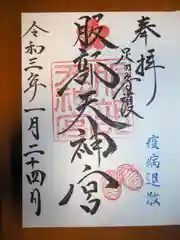 奉拝
足の守護
服部天神宮
令和三年一月二十四日
疫病退散